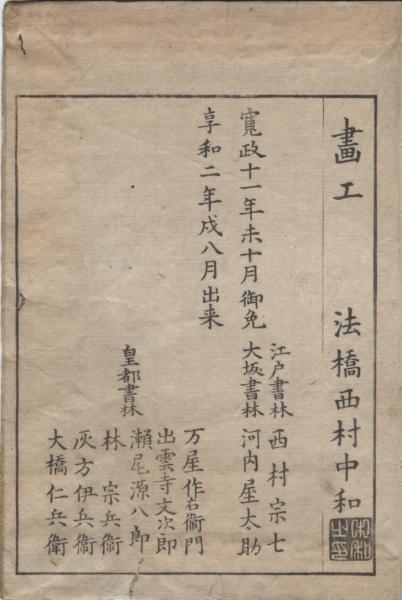 畫工　法橋西村中和
寛政十一年未十月御免
享和二年戌八月出来
江戸書林　西村宗七
大坂書林　河内屋太助
皇都書林
万屋作右衞門
出雲寺文次郎
瀬尾源八郎
林宗兵衞
灰方伊兵衞
大橋仁兵衞